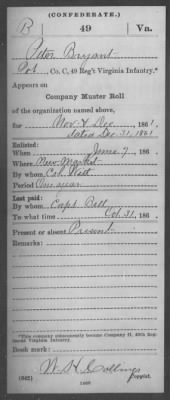 (CONFEDERATE.)
B 49 Va.
Peter Bryant
Pvt, Co. C, 49 Reg't Virginia Infantry.*
Appears on
Company Muster Roll
of the organization named above,
for Nov & Dec, 1861.
dated Dec. 31, 1861
Enlisted:
When June 7, 186 .
Where New Market
By whom Col. Watt
Period One year
Last paid:
By whom Capt. Bell
To what time Oct. 31, 186 .
Present or absent Present
Remarks:
*This company subsequently became Company H, 49th Regiment Virginia Infantry.
Book mark:
W. H. Collins
(642) Copyist.